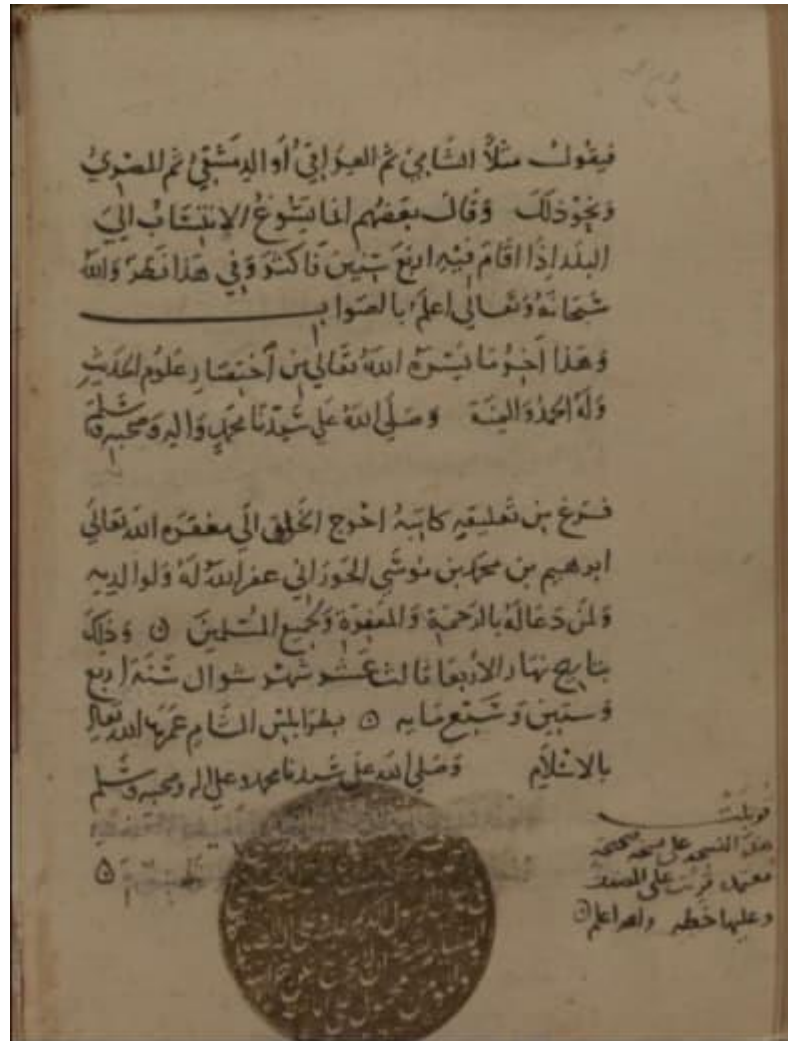 فيقول مثلاً الشامي ثم العراقي أو الدمشقي ثم المصري
ونحو ذلك وقال بعضهم انما يسوغ الانتساب الي
البلد اذا اقام فيه اربع سنين فاكثر وفي هذا نظر والله
سبحانه وتعالى اعلم بالصواب
وهذا آخر ما يسره الله تعالى من اختصار علوم الحديث
وله الحمد والمنة وصلى الله على سيدنا محمد واله وصحبه وسلم
فرغ من تعليقه كاتبه احوج الخلق الي مغفرة الله تعالى
ابرهيم بن محمد بن موسى الحوراني عفر الله له ولوالديه
ولمن دعا له بالرحمة والمغفرة ولجميع المسلمين وذلك
بتاريخ نهار الاربعا ثالث عشر شهر شوال سنة اربع
وستين وسبع مايه بطرابلس الشام عمرها الله تعالى
بالاسلام وصلى الله على سيدنا محمد وعلى اله وصحبه وسلم
قوبلت
هذه النسخه على نسخه صحيحة
معتمدة قرئت على المصنف
وعليها خطه والله اعلم